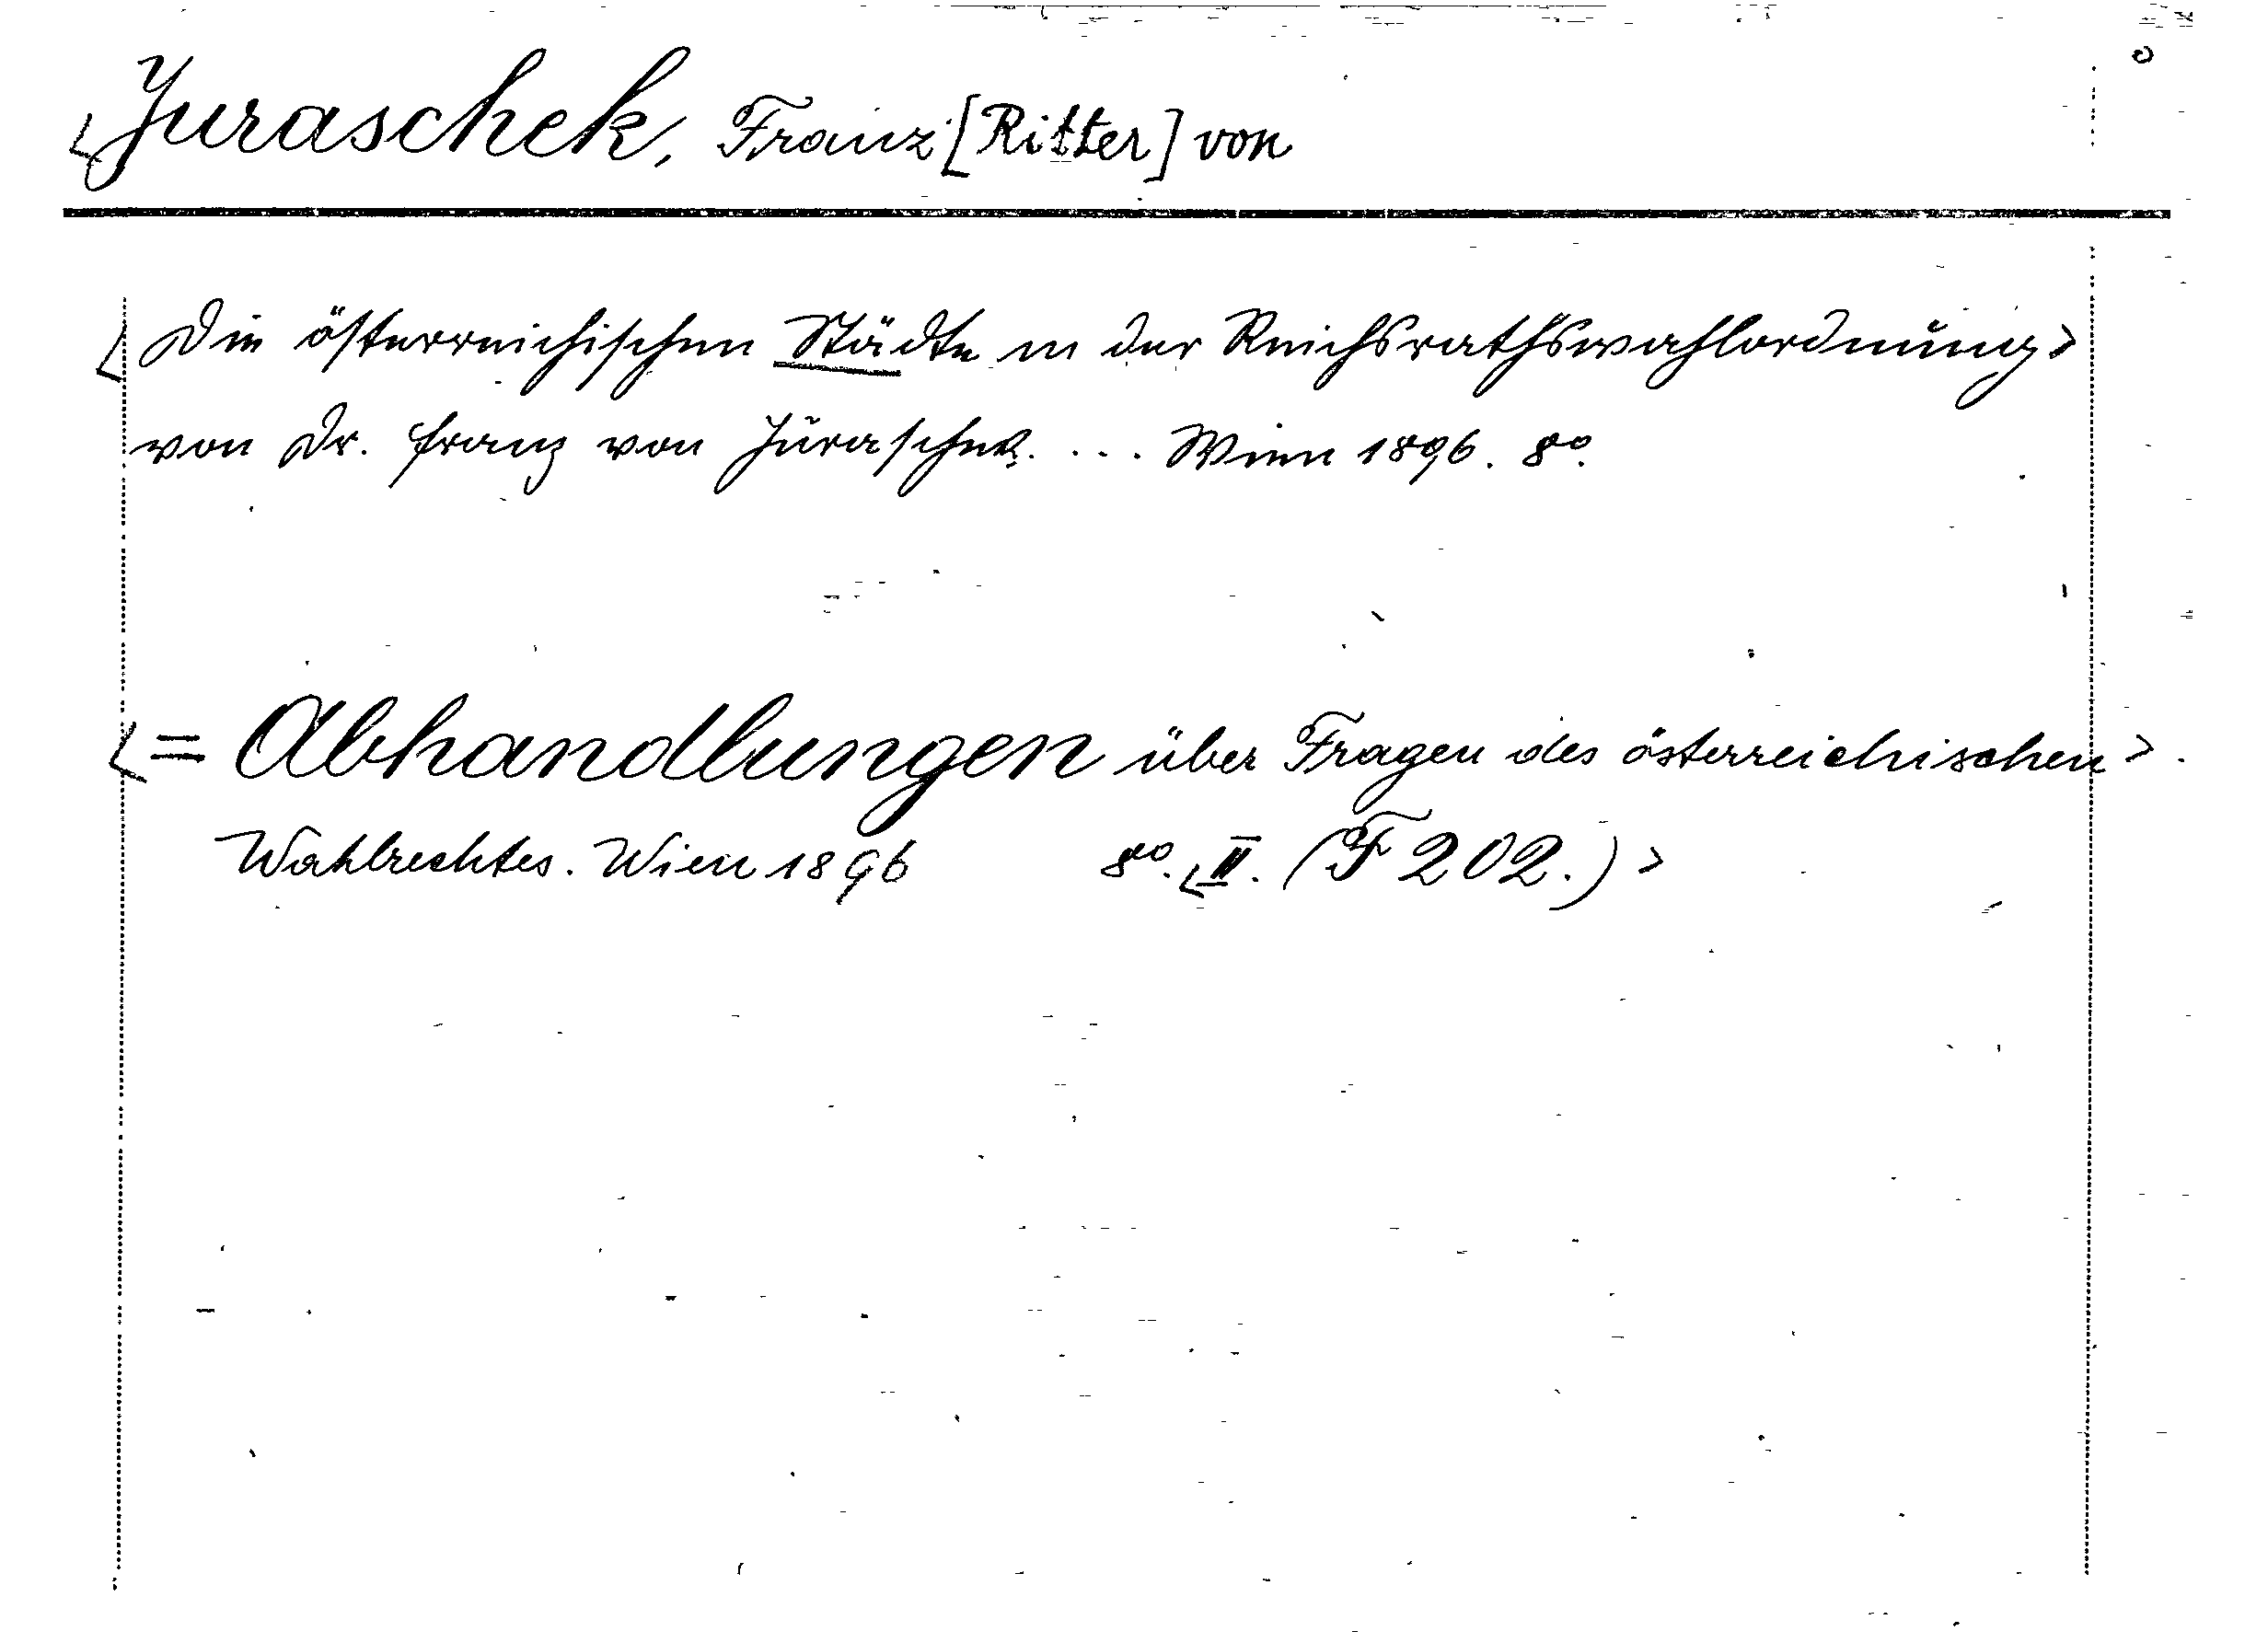 <Juraschek, Franz [Ritter] von
<Die österreichischen Städte in der Reichsrathswahlordnung>
von Dr. Franz von Juraschek. ... Wien 1896. 8º.
<= Abhandlungen über Fragen des österreichischen>.
Wahlrechtes. Wien 1896 8º. <II. (F 202.)>